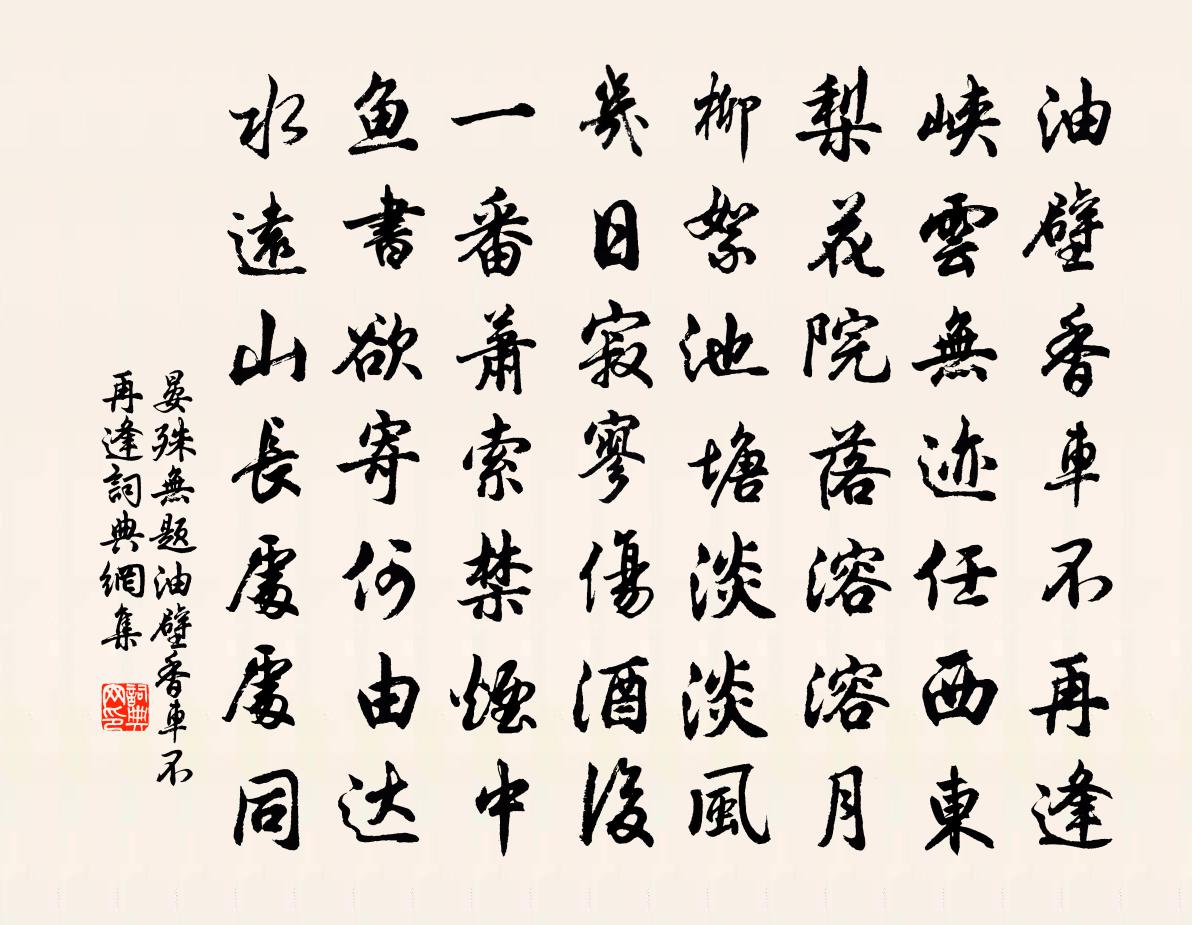 油壁香車不再逢
峽雲無迹任西東
梨花院落溶溶月
柳絮池塘淡淡風
幾日寂寥傷酒後
一番蕭索禁煙中
魚書欲寄何由达
水遠山長處處同
晏殊無题油壁香車不
再逢詞典網集
詞典
网印